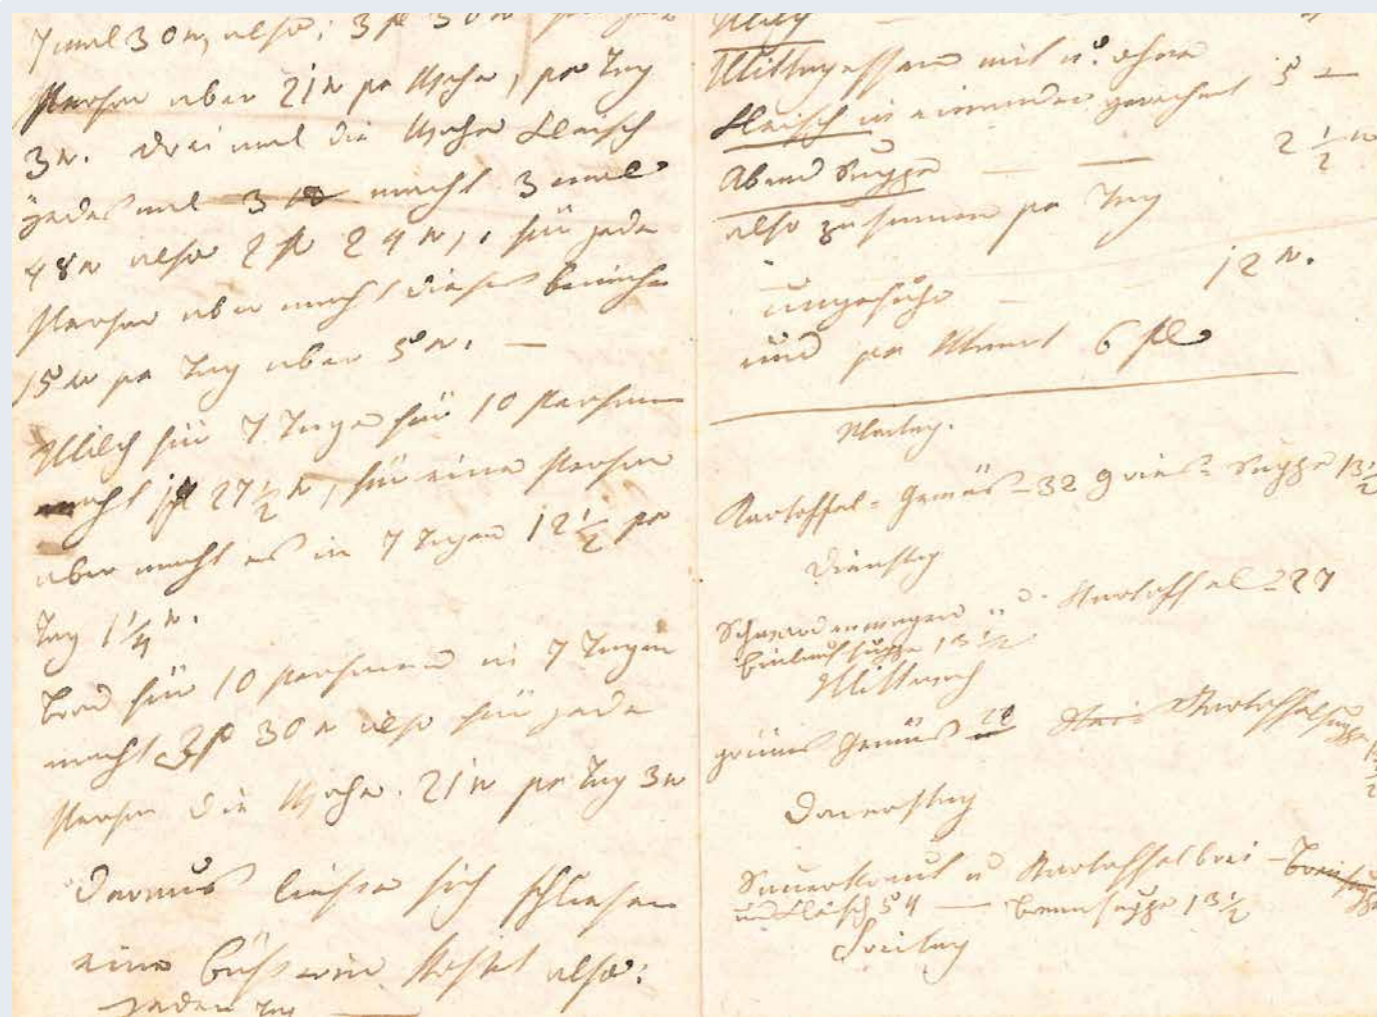 7 mal 30 x, also: 3 fl 30 x
Person aber 21 x pr Woche, pr Tag
3 x. drei mal die Woche Fleisch
jedesmal macht 3 mal
48 x also 2 fl 24 x, für jede
Person aber macht dieses beinahe
15 x pr Tag aber 5 x. —
Milch für 7 Tage für 10 Personen
macht 27 1/2 x, für eine Person
aber macht es in 7 Tagen 12 1/2 pr
Tag 1 1/4 x.
Brod für 10 Personen in 7 Tagen
macht 3 fl 30 x also für jede
Person die Woche. 21 x pr Tag 3 x
Daraus ließe sich schließen
eine also:
jeden Tag
Mittagessen mit u. ohne
Fleisch in einander gerechnet 5 —
Abend Suppe — — 2 1/2 x
also zusammen pr Tag
ungefähr — — 12 x.
und pr Monat 6 fl
Montag.
Kartoffel-Gemüs - 32 Gries-Suppe 13 1/2
Dienstag
u. Kartoffel - 27
Einlaufsuppe 13 1/2
Mittwoch
grünes Gemüs Kartoffelsuppe
Donnerstag
Sauerkraut u Kartoffelbrei —
und Fleisch 54 — Brennsuppe 13 1/2
Freitag